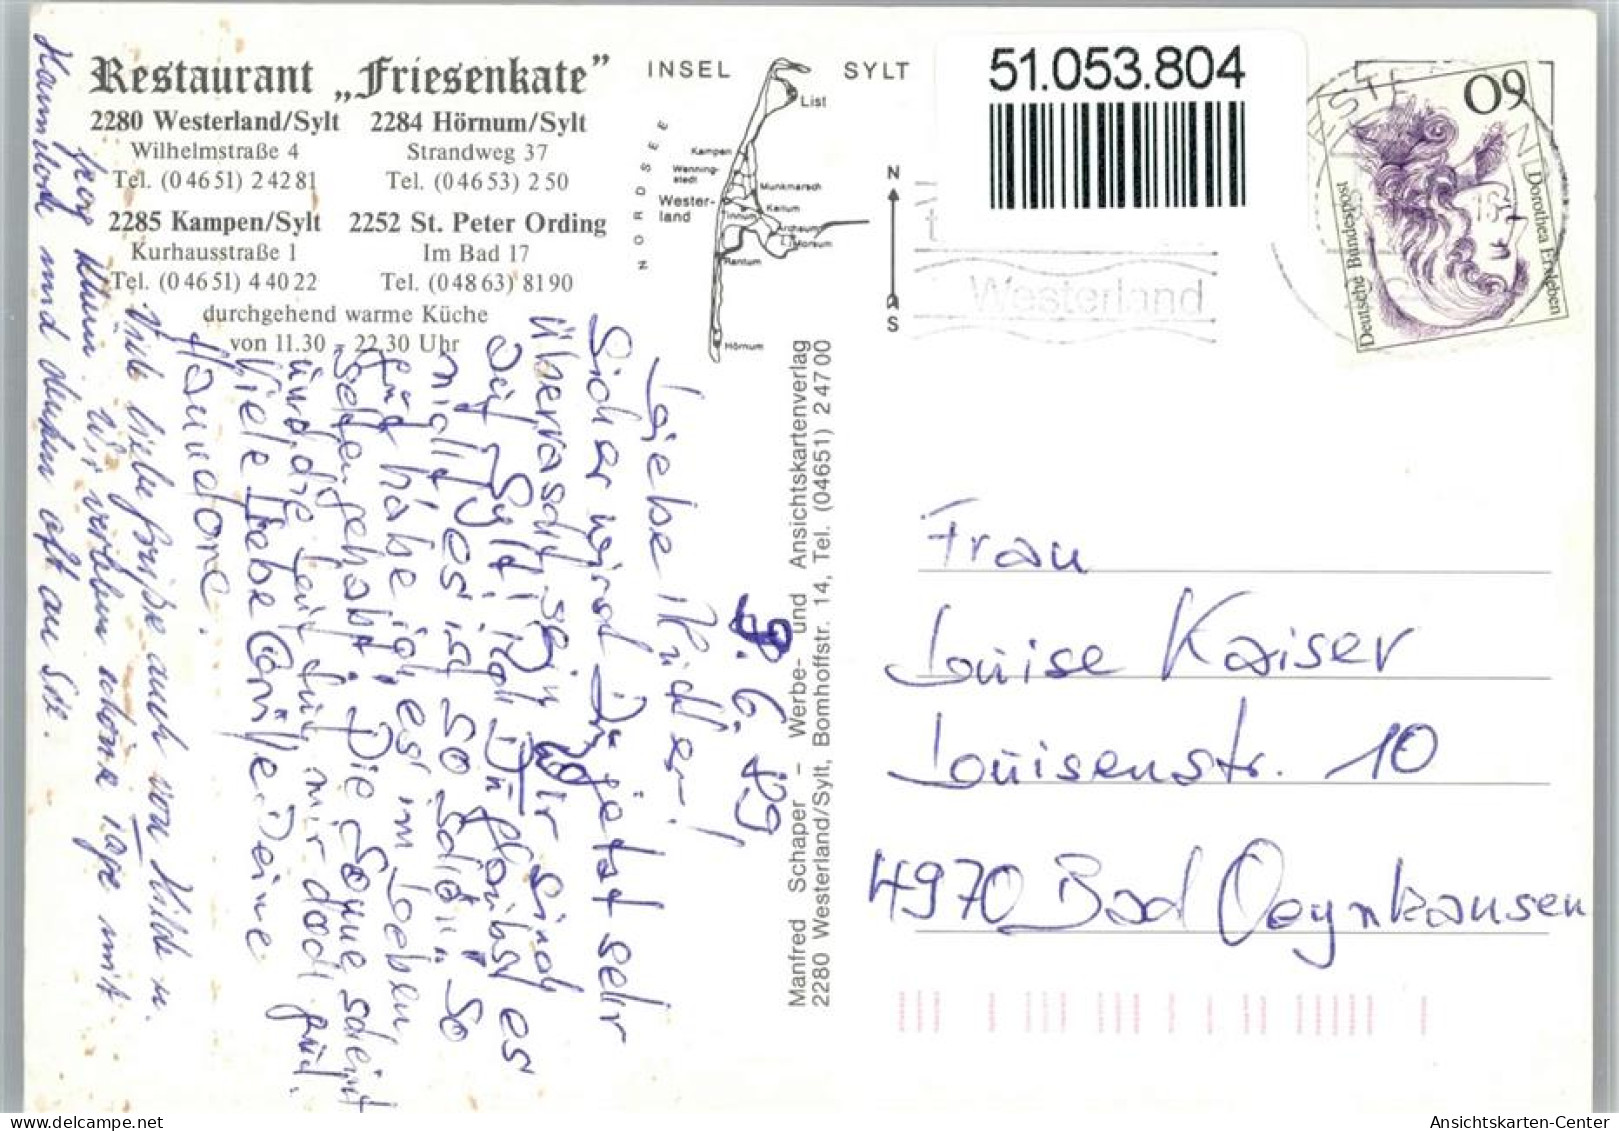 Restaurant „Friesenkate”
2280 Westerland/Sylt
Wilhelmstraße 4
Tel. (0 46 51) 2 42 81
2284 Hörnum/Sylt
Strandweg 37
Tel. (0 46 53) 2 50
2285 Kampen/Sylt
Kurhausstraße 1
Tel. (0 46 51) 4 40 22
2252 St. Peter Ording
Im Bad 17
Tel. (0 48 63) 81 90
durchgehend warme Küche
von 11.30 - 22.30 Uhr
INSEL SYLT
NORDSEE
List
Kampen
Wenning-
stedt
Munkmarsch
Wester-
land
Tinnum
Keitum
Archsum
Morsum
Rantum
Hörnum
N
S
51.053.804
Westerland
60
Dorothea Erxleben
Deutsche Bundespost
Manfred Schaper – Werbe- und Ansichtskartenverlag
2280 Westerland/Sylt, Bomhoffstr. 14, Tel. (04651) 2 47 00
9. 6. 89
Liebe
Sicher wirst Du jetzt sehr
überrascht sein wir sind
auf Sylt! Du glaubst es
nicht es ist so schön so
habe ich es im Leben
selten gehabt. Die Sonne scheint
und die Luft tut mir doch gut.
Viele liebe Grüße Deine
Hannelore.
Viele liebe Grüße auch von Hilde u.
Wir verleben schöne Tage mit
Hannelore und denken oft an Sie.
Frau
Louise Kaiser
Louisenstr. 10
4970 Bad Oeynhausen
Ansichtskarten-Center